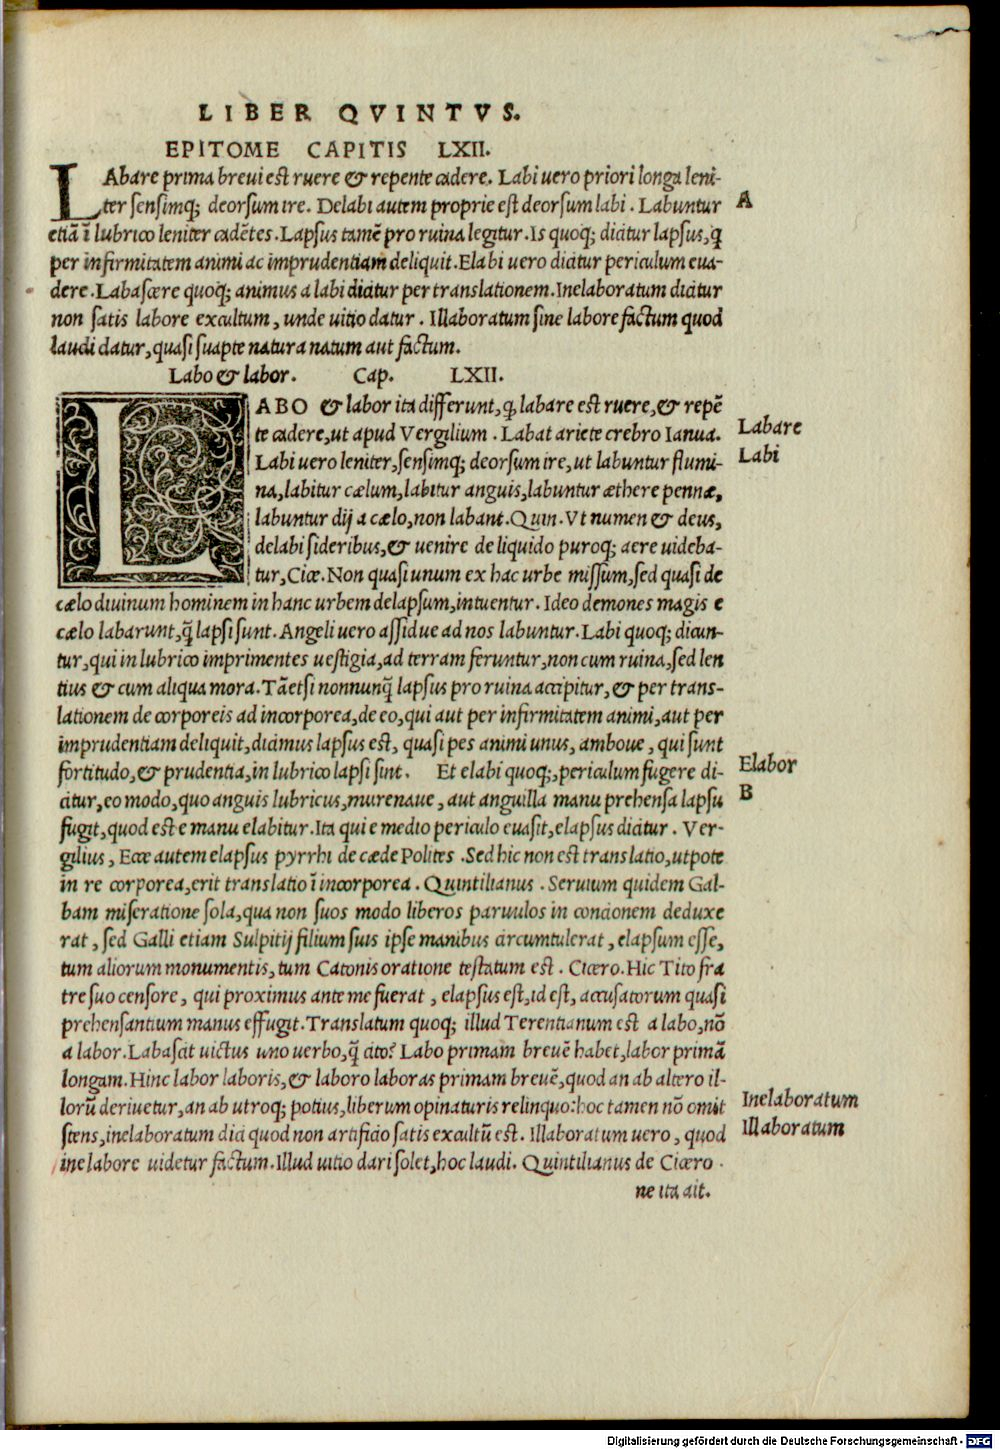 LIBER QVINTVS.
EPITOME CAPITIS LXII.
LAbare prima breui est ruere & repente cadere. Labi uero priori longa leni-
ter sensimq; deorsum ire. Delabi autem proprie est deorsum labi. Labuntur
A
etiā ī lubrico leniter cadētes. Lapsus tamē pro ruina legitur. Is quoq; dicitur lapsus, q
per infirmitatem animi ac imprudentiam deliquit. Elabi uero dicitur periculum eua-
dere. Labascere quoq; animus a labi dicitur per translationem. Inelaboratum dicitur
non satis labore excultum, unde uitio datur. Illaboratum sine labore factum quod
laudi datur, quasi suapte natura natum aut factum.
Labo & labor. Cap. LXII.
LABO & labor ita differunt, q, labare est ruere, & repē
te cadere, ut apud Vergilium. Labat ariete crebro Ianua.
Labare
Labi uero leniter, sensimq; deorsum ire, ut labuntur flumi-
Labi
na, labitur cælum, labitur anguis, labuntur æthere pennæ,
labuntur dij a cælo, non labant. Quin. Vt numen & deus,
delabi sideribus, & uenire de liquido puroq; aere uideba-
tur, Cice. Non quasi unum ex hac urbe missum, sed quasi de
cælo diuinum hominem in hanc urbem delapsum, intuentur. Ideo demones magis e
cælo labarunt, q̄ lapsi sunt. Angeli uero assidue ad nos labuntur. Labi quoq; dicun-
tur, qui in lubrico imprimentes uestigia, ad terram feruntur, non cum ruina, sed len
tius & cum aliqua mora. Tāetsi nonnunq̄ lapsus pro ruina accipitur, & per trans-
lationem de corporeis ad incorporea, de eo, qui aut per infirmitatem animi, aut per
imprudentiam deliquit, dicimus lapsus est, quasi pes animi unus, amboue, qui sunt
fortitudo, & prudentia, in lubrico lapsi sint. Et elabi quoq;, periculum fugere di-
Elabor
citur, eo modo, quo anguis lubricus, murenaue, aut anguilla manu prehensa lapsu
B
fugit, quod est e manu elabitur. Ita qui e medio periculo euasit, elapsus dicitur. Ver-
gilius, Ecce autem elapsus pyrrhi de cæde Polites. Sed hic non est translatio, utpote
in re corporea, erit translatio ī incorporea. Quintilianus. Seruium quidem Gal-
bam miseratione sola, qua non suos modo liberos paruulos in concionem deduxe
rat, sed Galli etiam Sulpitij filium suis ipse manibus circumtulerat, elapsum esse,
tum aliorum monumentis, tum Catonis oratione testatum est. Cicero. Hic Tito fra
tre suo censore, qui proximus ante me fuerat, elapsus est, id est, accusatorum quasi
prehensantium manus effugit. Translatum quoq; illud Terentianum est a labo, nō
a labor. Labascit uictus uno uerbo, q̄ cito? Labo primam breuē habet, labor primā
longam. Hinc labor laboris, & laboro laboras primam breuē, quod an ab altero il-
lorū deriuetur, an ab utroq; potius, liberum opinaturis relinquo: hoc tamen nō omit
Inelaboratum
stens, inelaboratum dici quod non artificio satis excultū est. Illaboratum uero, quod
Illaboratum
ine labore uidetur factum. Illud uitio dari solet, hoc laudi. Quintilianus de Cicero
ne ita ait.
Digitalisierung gefördert durch die Deutsche Forschungsgemeinschaft - DFG